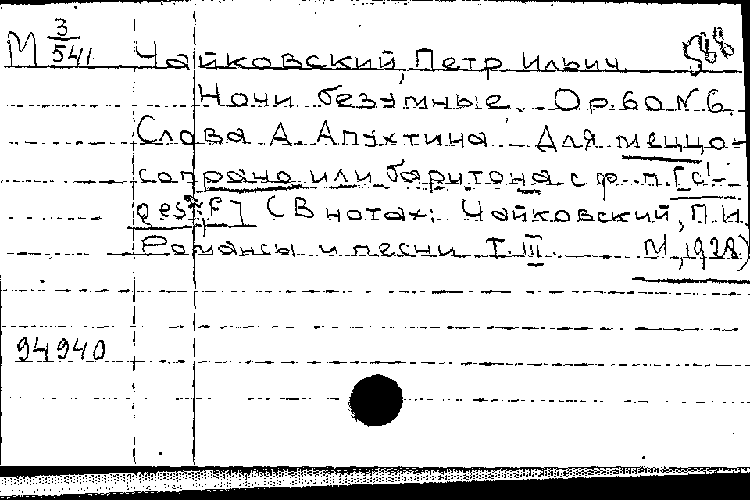 М 3/541 Чайковский, Петр Ильич 588
Ночи безумные. Op. 60 N 6.
Слова А. Апухтина Для меццо-
сопрано или баритона с ф.-п. [c¹-
geses² f²] (В нотах: Чайковский, П.И.
Романсы и песни Т. III. М., 1928)
94940